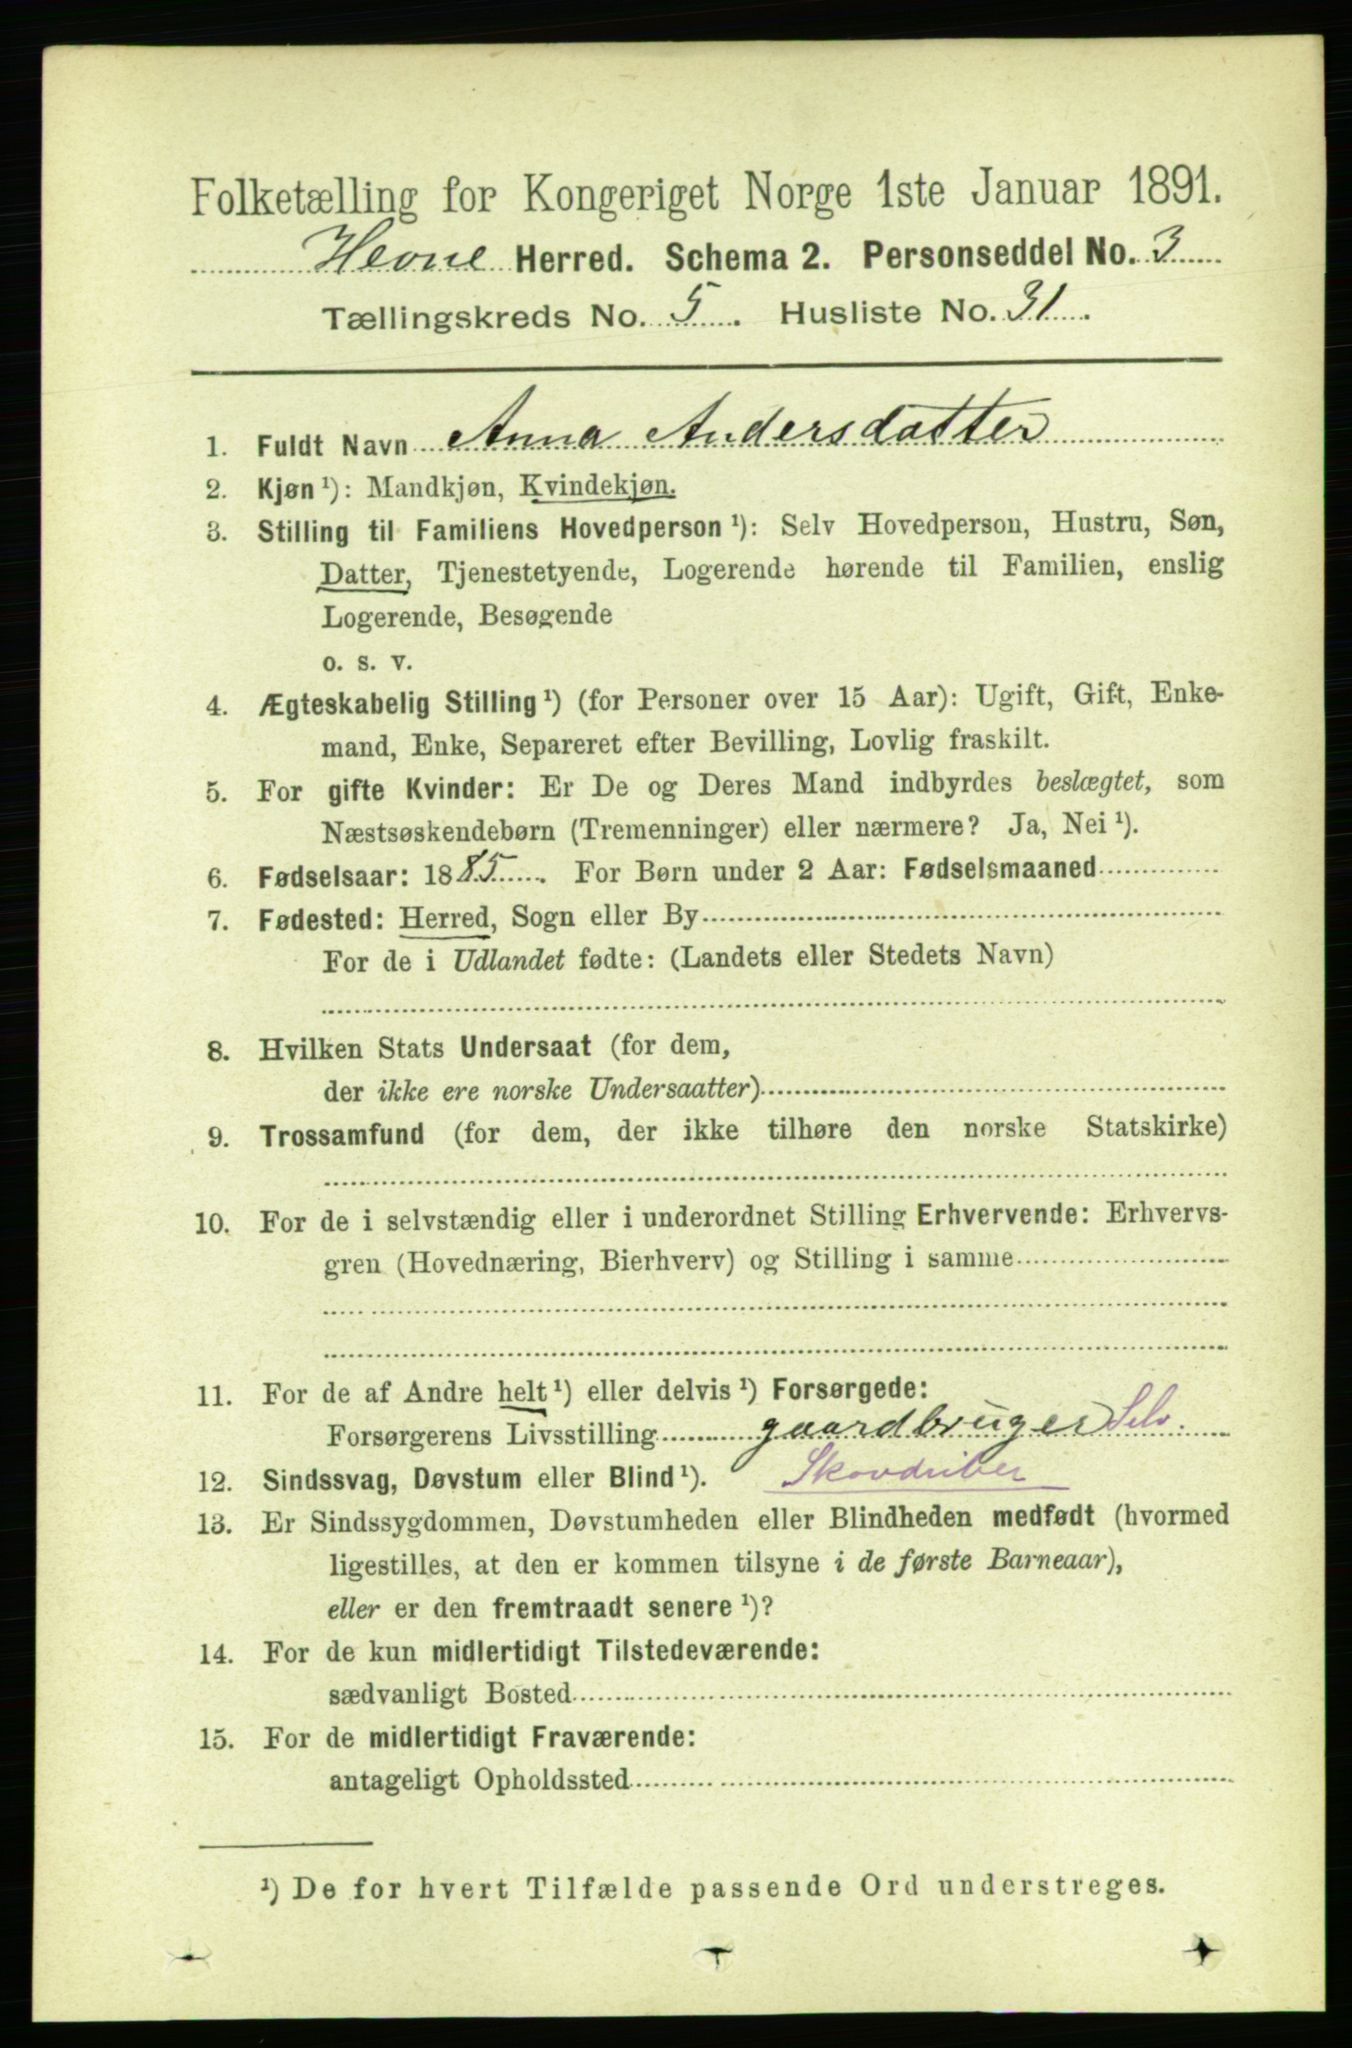 Folketælling for Kongeriget Norge 1ste Januar 1891.
Hevne Herred. Schema 2. Personseddel No. 3
Tællingskreds No. 5. Husliste No. 31.
1. Fuldt Navn Anna Andersdatter
2. Kjøn ¹): Mandkjøn, Kvindekjøn.
3. Stilling til Familiens Hovedperson ¹): Selv Hovedperson, Hustru, Søn,
Datter, Tjenestetyende, Logerende hørende til Familien, enslig
Logerende, Besøgende
o. s. v.
4. Ægteskabelig Stilling ¹) (for Personer over 15 Aar): Ugift, Gift, Enke-
mand, Enke, Separeret efter Bevilling, Lovlig fraskilt.
5. For gifte Kvinder: Er De og Deres Mand indbyrdes beslægtet, som
Næstsøskendebørn (Tremenninger) eller nærmere? Ja, Nei ¹).
6. Fødselsaar: 1885. For Børn under 2 Aar: Fødselsmaaned
7. Fødested: Herred, Sogn eller By
For de i Udlandet fødte: (Landets eller Stedets Navn)
8. Hvilken Stats Undersaat (for dem,
der ikke ere norske Undersaatter)
9. Trossamfund (for dem, der ikke tilhøre den norske Statskirke)
10. For de i selvstændig eller i underordnet Stilling Erhvervende: Erhvervs-
gren (Hovednæring, Bierhverv) og Stilling i samme
11. For de af Andre helt ¹) eller delvis ¹) Forsørgede:
Forsørgerens Livsstilling gaardbruger Selv.
12. Sindssvag, Døvstum eller Blind ¹). Skovdriber
13. Er Sindssygdommen, Døvstumheden eller Blindheden medfødt (hvormed
ligestilles, at den er kommen tilsyne i de første Barneaar),
eller er den fremtraadt senere ¹)?
14. For de kun midlertidigt Tilstedeværende:
sædvanligt Bosted
15. For de midlertidigt Fraværende:
antageligt Opholdssted
¹) De for hvert Tilfælde passende Ord understreges.